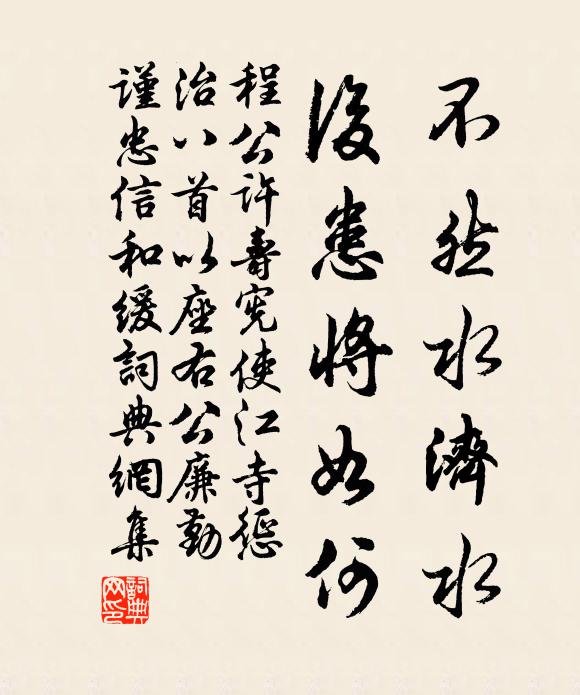 不然水濟水
後患將如何
程公許壽寃使江寺丞
治八首以座右公廉勤
謹忠信和緩詞典網集
詞典網印